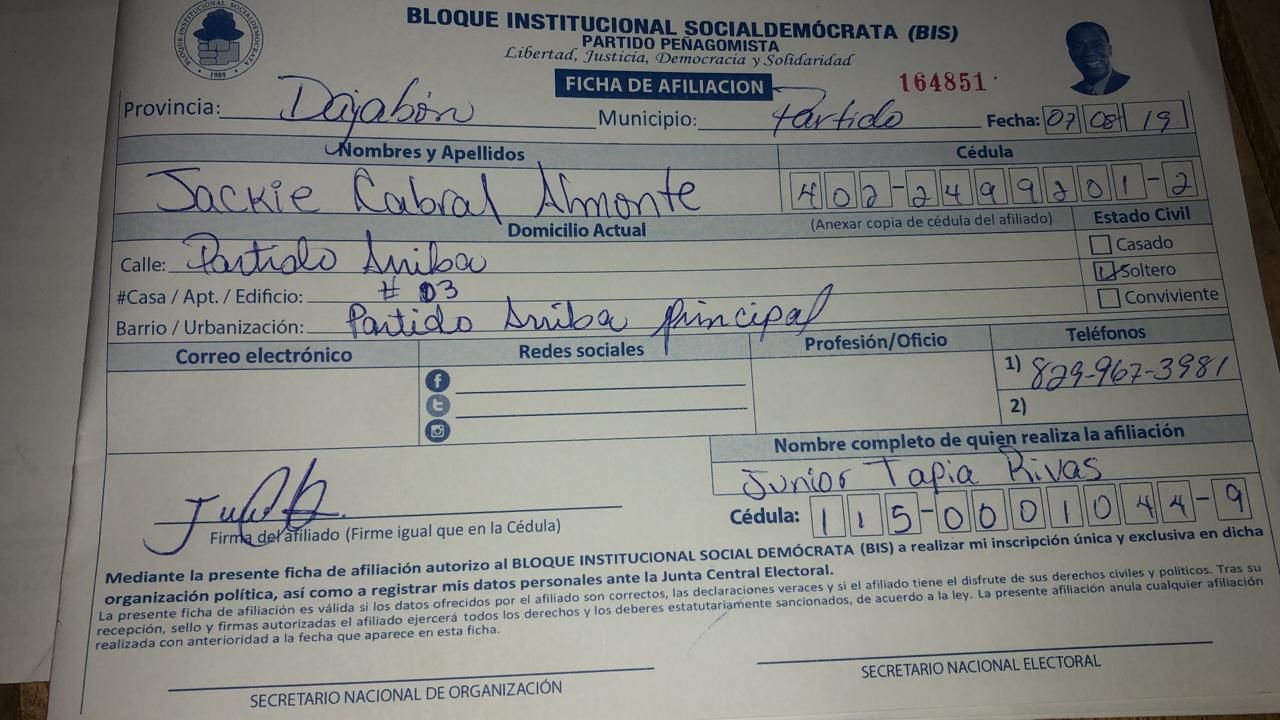 BLOQUE INSTITUCIONAL SOCIALDEMÓCRATA (BIS)
PARTIDO PEÑAGOMISTA
Libertad, Justicia, Democracia y Solidaridad
BLOQUE INSTITUCIONAL SOCIALDEMOCRATA
1989
FICHA DE AFILIACION
164851
Provincia: Dajabón Municipio: Partido Fecha: 07 08 19
Nombres y Apellidos Cédula
Jackie Cabral Almonte 402-2499201-2
Domicilio Actual (Anexar copia de cédula del afiliado) Estado Civil
Calle: Partido Arriba Casado
#Casa / Apt. / Edificio: # 03 Soltero
Barrio / Urbanización: Partido Arriba principal Conviviente
Correo electrónico Redes sociales Profesión/Oficio Teléfonos
1) 829-967-3981
2)
Nombre completo de quien realiza la afiliación
Junior Tapia Rivas
Cédula: 115-0001044-9
Firma del afiliado (Firme igual que en la Cédula)
Mediante la presente ficha de afiliación autorizo al BLOQUE INSTITUCIONAL SOCIAL DEMÓCRATA (BIS) a realizar mi inscripción única y exclusiva en dicha
organización política, así como a registrar mis datos personales ante la Junta Central Electoral.
La presente ficha de afiliación es válida si los datos ofrecidos por el afiliado son correctos, las declaraciones veraces y si el afiliado tiene el disfrute de sus derechos civiles y politicos. Tras su
recepción, sello y firmas autorizadas el afiliado ejercerá todos los derechos y los deberes estatutariamente sancionados, de acuerdo a la ley. La presente afiliación anula cualquier afiliación
realizada con anterioridad a la fecha que aparece en esta ficha.
SECRETARIO NACIONAL DE ORGANIZACIÓN SECRETARIO NACIONAL ELECTORAL